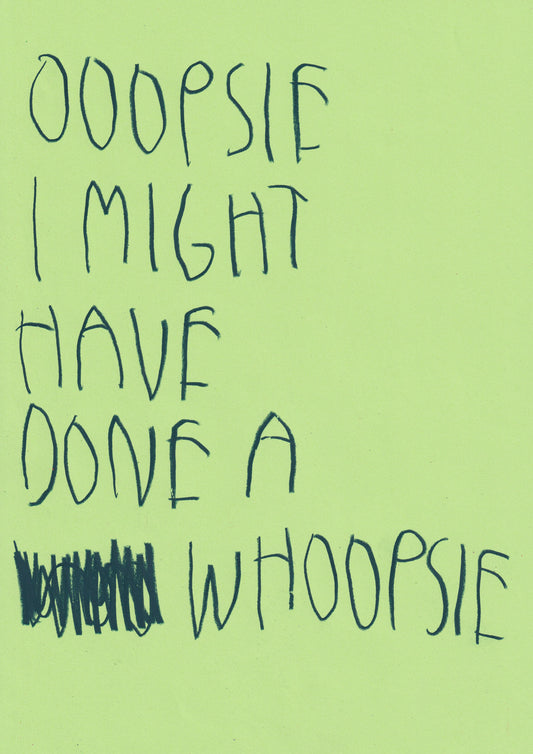 OOOPSIE
I MIGHT
HAVE
DONE A
WHOOPSIE